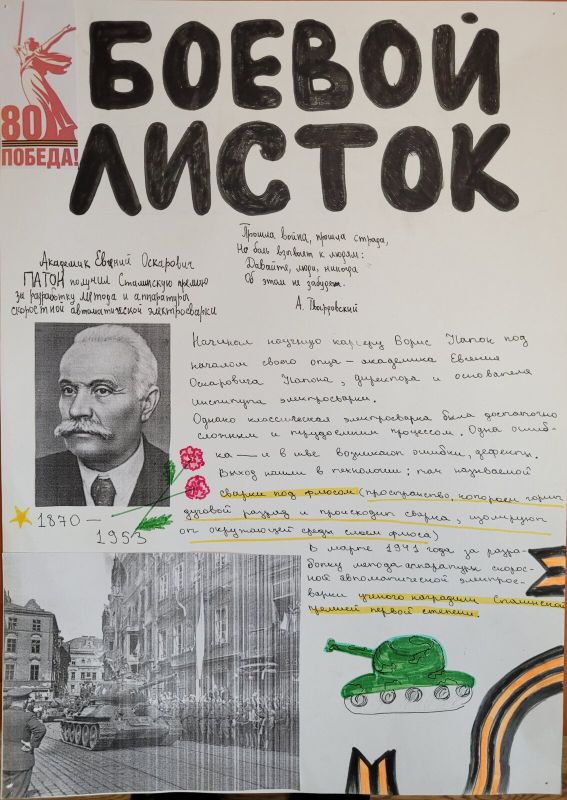 БОЕВОЙ
ЛИСТОК
80
ПОБЕДА!
Прошла война, прошла страда,
Но боль взывает к людям:
Давайте, люди, никогда
Об этом не забудем.
А. Твардовский
Академик Евгений Оскарович
ПАТОН получил Сталинскую премию
за разработку метода и аппаратуры
скоростной автоматической электросварки
Начинал научную карьеру Борис Патон под
началом своего отца – академика Евгения
Оскаровича Патона, директора и основателя
института электросварки.
Однако классическая электросварка была достаточно
сложным и трудоемким процессом. Одна ошиб-
ка — и в шве возникают ошибки, дефекты.
Выход нашли в технологии: так называемой
сварки под флюсом (пространство, котором горит
дуговой разряд и происходит сварка, изолируют
от окружающей среды слоем флюса)
1870 –
1953
В марте 1941 года за разра-
ботку метода аппаратуры скорос-
ной автоматической электрос-
варки ученого наградили Сталинской
премией первой степени.